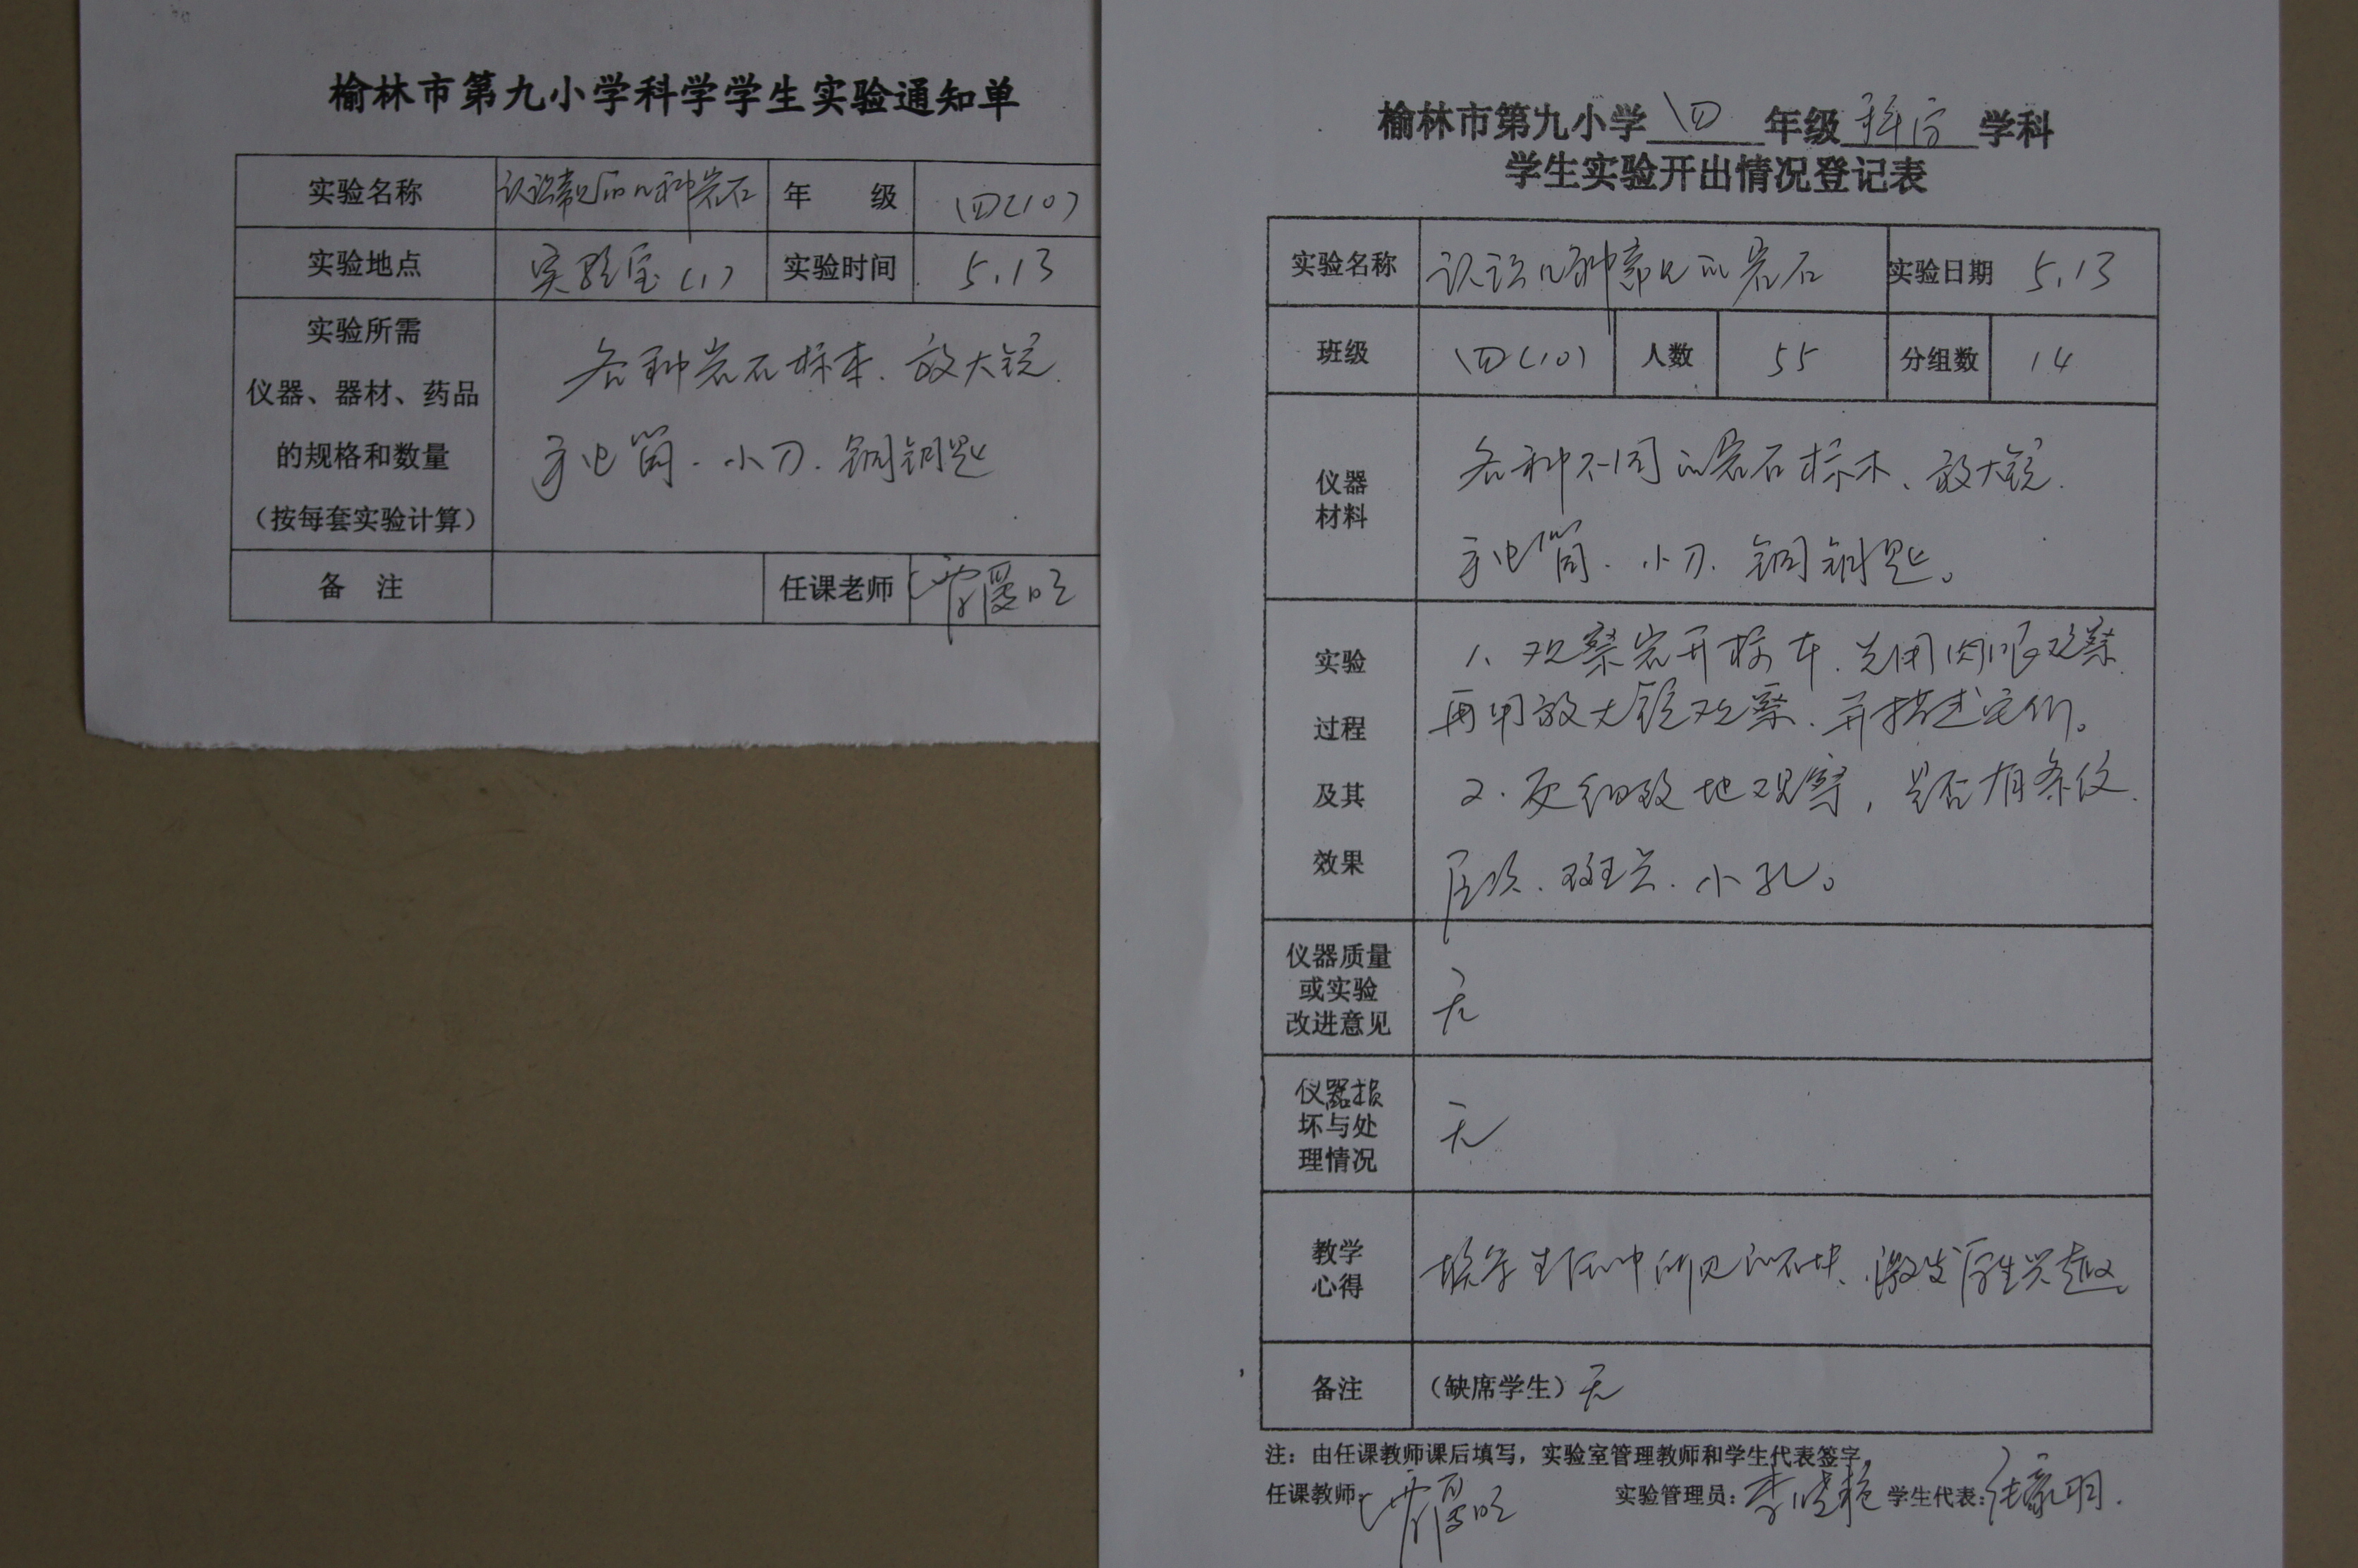 榆林市第九小学科学学生实验通知单
实验名称 认识常见的几种岩石 年 级 四(10)
实验地点 实验室(1) 实验时间 5.13
实验所需
仪器、器材、药品
的规格和数量
(按每套实验计算)
各种岩石标本、放大镜.
手电筒.小刀.铜钥匙
备 注 任课老师
榆林市第九小学 四 年级 科学 学科
学生实验开出情况登记表
实验名称 认识几种常见的岩石 实验日期 5.13
班级 四(10) 人数 55 分组数 14
仪器
材料
各种不同的岩石标本、放大镜.
手电筒.小刀.铜钥匙。
实验
过程
及其
效果
1、观察岩石标本.先用肉眼观察
再用放大镜观察.并描述它们。
2.更细致地观察,是否有条纹.
层次.斑点.小孔。
仪器质量
或实验
改进意见
无
仪器损
坏与处
理情况
无
教学
心得
学生 所见的石块、激发学生兴趣。
备注 (缺席学生)无
注:由任课教师课后填写,实验室管理教师和学生代表签字。
任课教师: 实验管理员:李晓艳 学生代表: